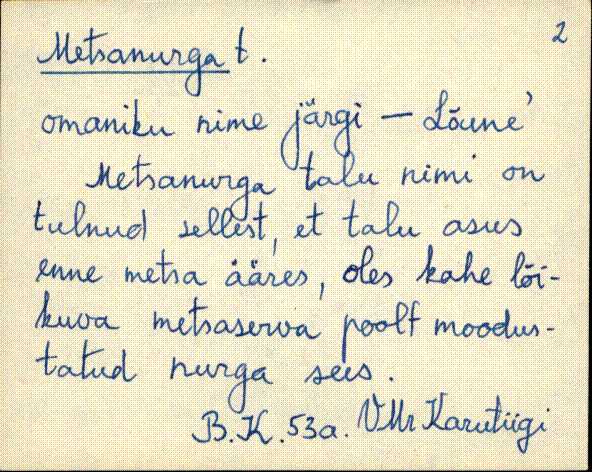 2
Metsanurga t.
omaniku nime järgi – Lõune'
Metsanurga talu nimi on
tulnud sellest, et talu asus
enne metsa ääres, oles kahe lõi-
kuva metsaserva poolt moodus-
tatud nurga sees.
B.K. 53a. VMr Karutiigi